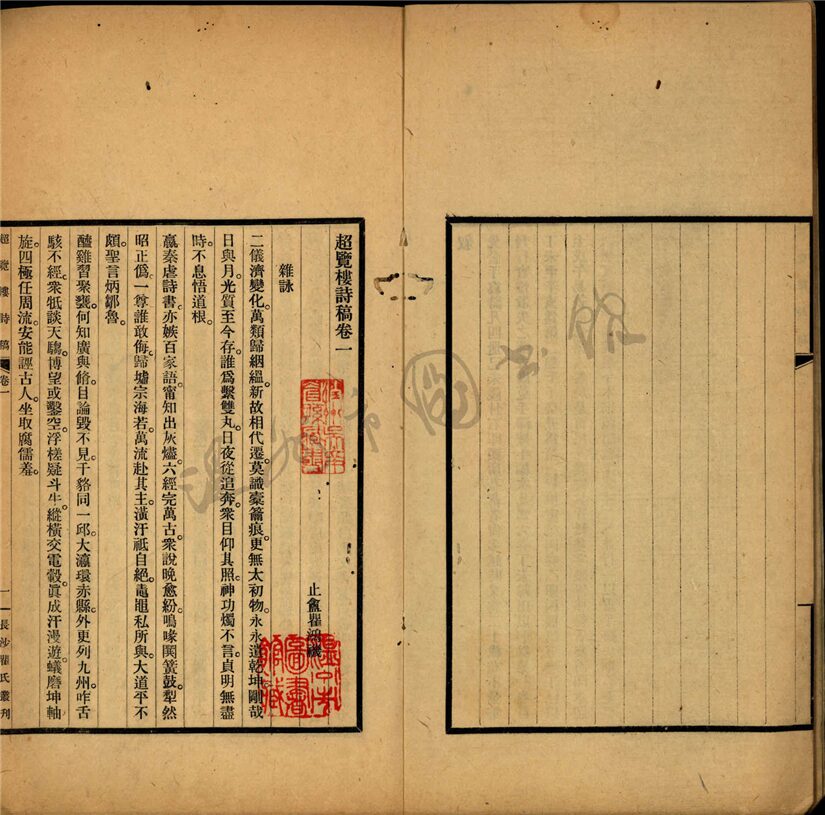 超覽樓詩稿卷一
止盦瞿鴻禨
雜詠
二儀濟變化。萬類歸絪縕。新故相代遷。莫識橐籥痕。更無太初物。永永遺乾坤。剛哉
日與月。光質至今存。誰爲繫雙丸。日夜從追奔。衆目仰其照。神功燭不言。貞明無盡
時。不息悟道根。
嬴秦虐詩書。亦嫉百家語。甯知出灰燼。六經完萬古。衆說晚愈紛。鳴喙関簧鼓。犁然
昭正僞。一尊誰敢侮。歸墟宗海若。萬流赴其主。潢汙祗自絕。鼃黽私所與。大道平不
頗。聖言炳鄒魯。
醯雞習聚甕。何知廣與脩。目論毀不見。千貉同一邱。大瀛環赤縣。外更列九州。咋舌
駭不經。衆牴談天騶。博望或鑿空。浮槎疑斗牛。縱橫交電轂。眞成汗漫遊。蟻磨坤軸
旋。四極任周流。安能誣古人。坐取腐儒羞。
超覽樓詩稿 卷一
一 長沙瞿氏叢刊
溫州市圖書館
圖書館藏